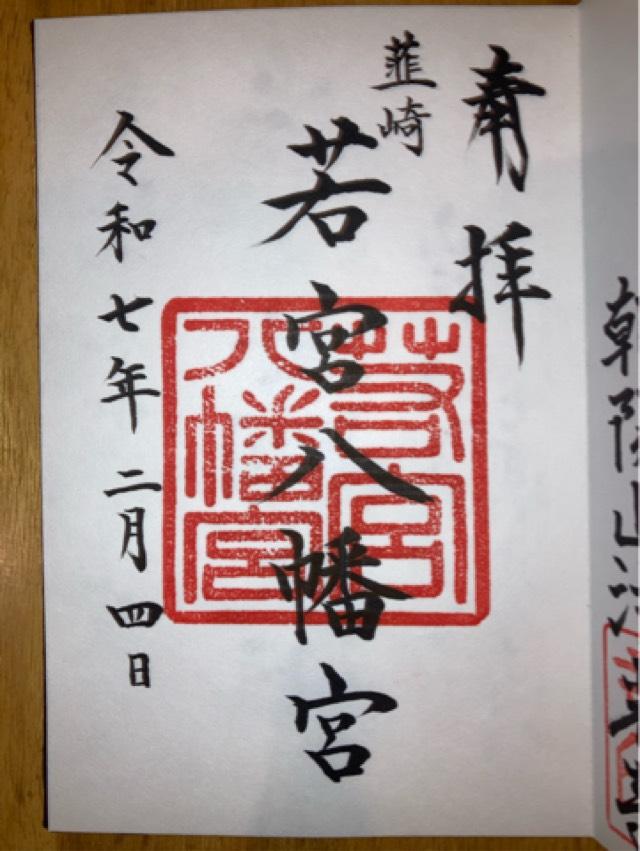 奉拝
韮崎
若宮八幡宮
若宮
八幡宮
令和七年二月四日